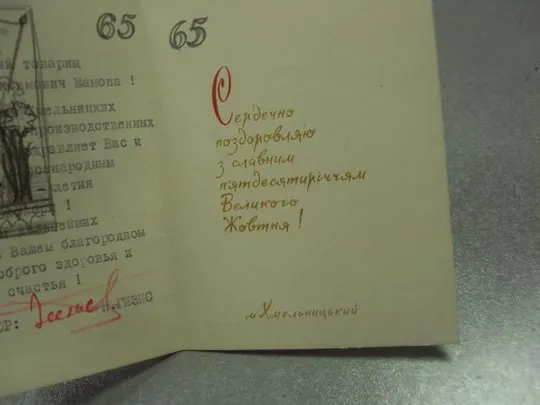 65 65
товарищ
мович Мамона !
мельницких
производственных
дравляет Вас и
сенародным
летия
!
нейших
Вашем благородном
оброго здоровья и
счастья !
СР:
Сердечно
поздоровляю
з славним
п'ятдесятиріччям
Великого
Жовтня !
м Хмельницький